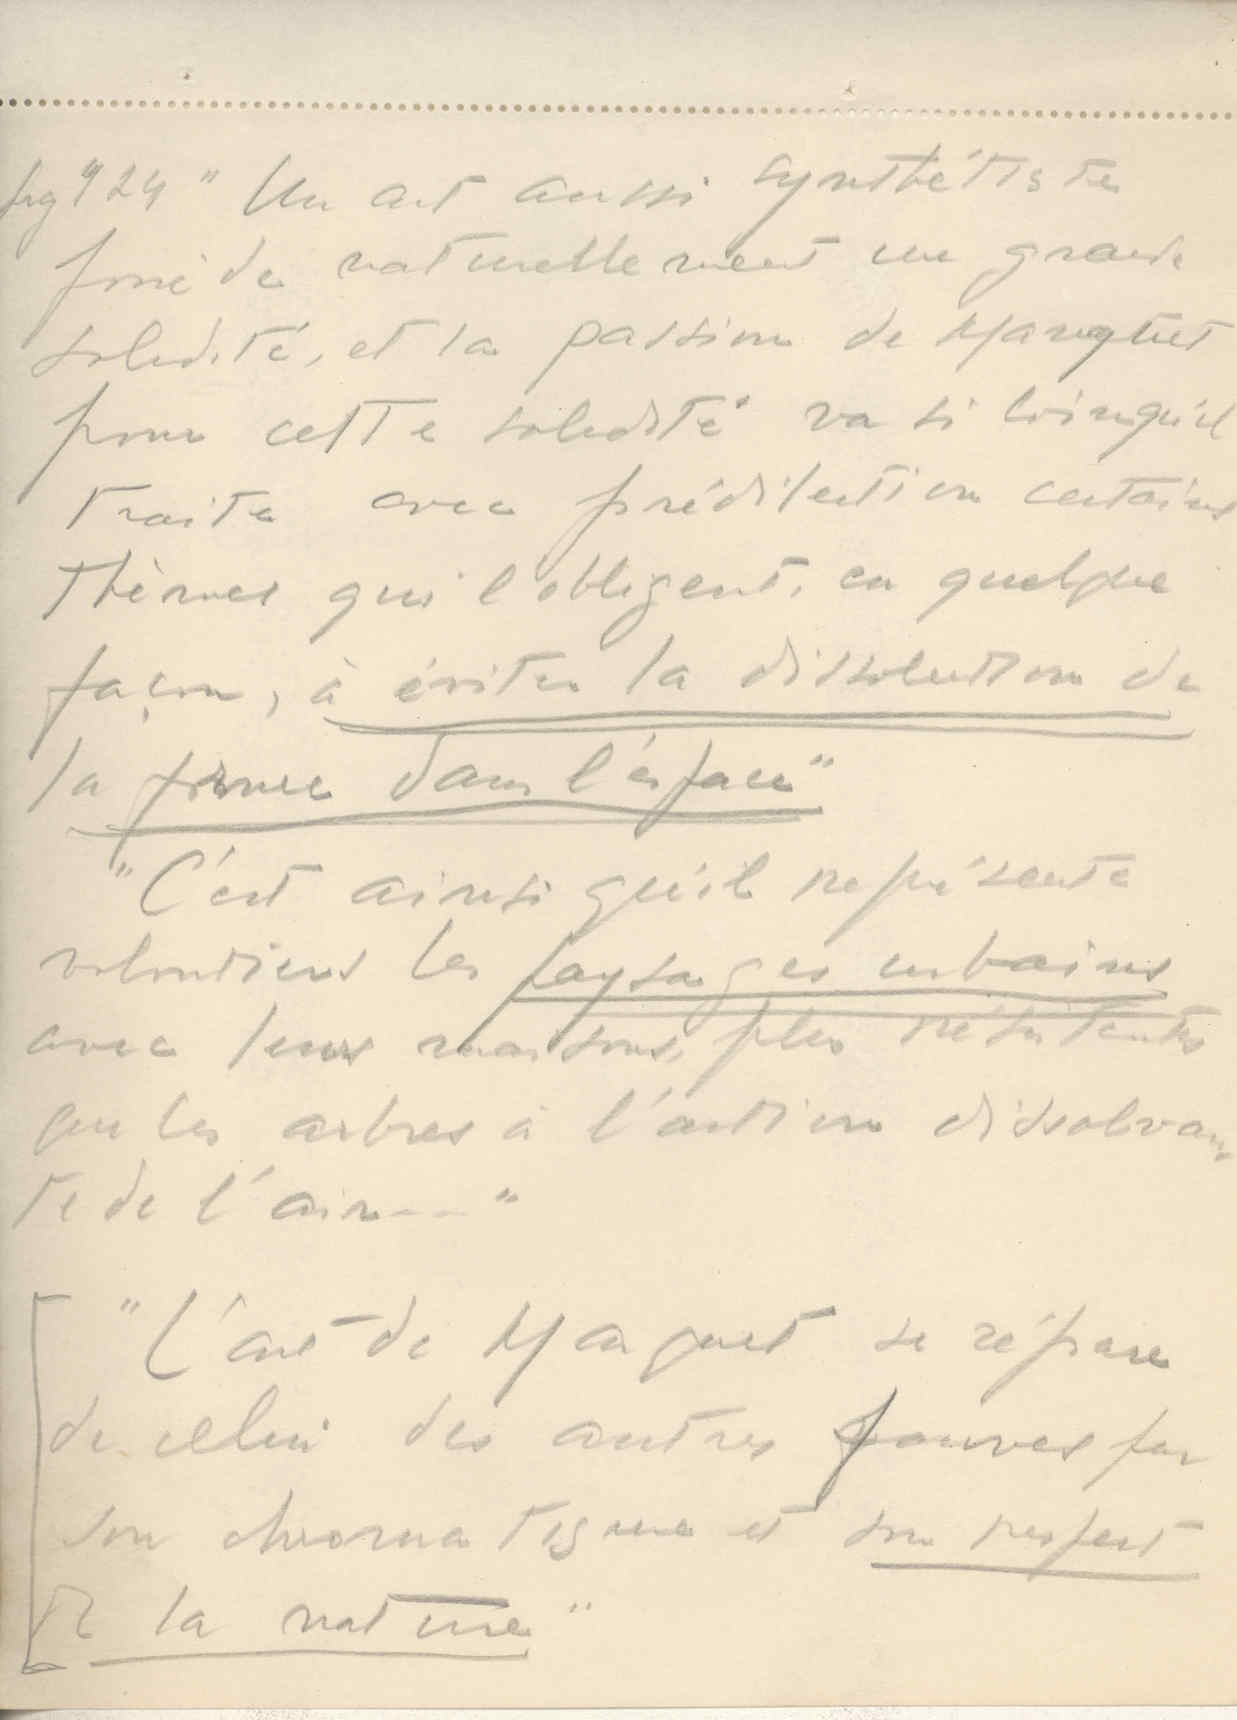 pg 124 " Un art aussi synthétiste
possède naturellement une grande
solidité, et la passion de Marquet
pour cette solidité va si loin qu'il
traite avec prédilection certains
thèmes qui l'obligent, en quelque
façon, à éviter la dissolution de
la forme dans l'espace"
"C'est ainsi qu'il représente
volontiers les paysages urbains
avec leurs maisons, plus résistantes
que les arbres à l'action dissolvan-
te de l'air---"
"L'art de Marquet se sépare
de celui des autres fauves par
son chromatisme et son respect
de la nature"